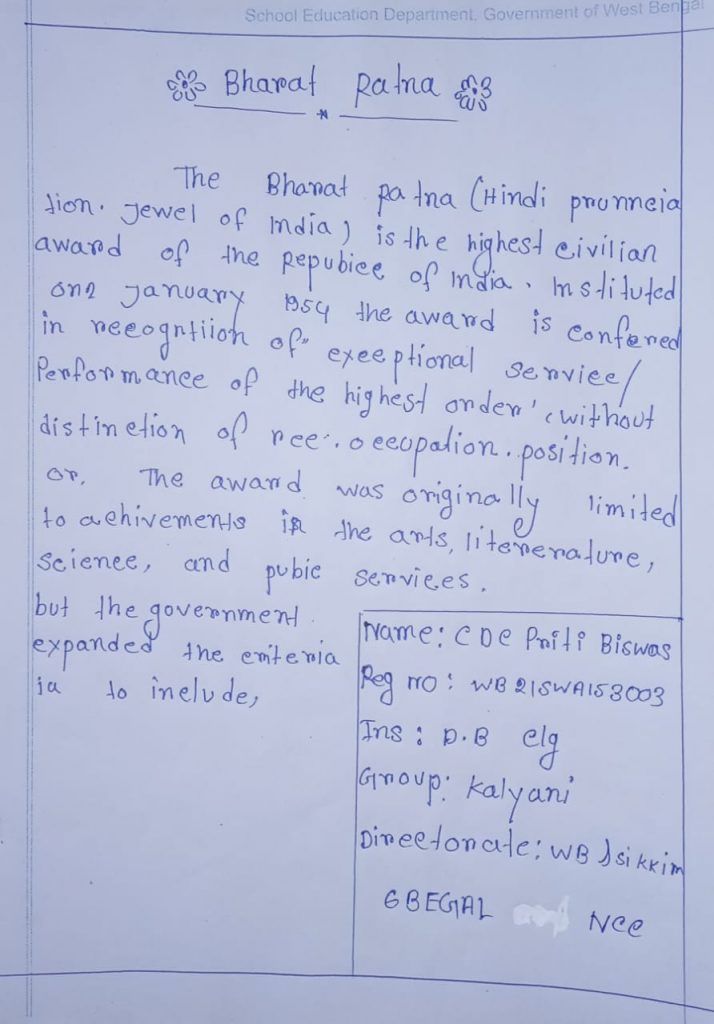 School Education Department, Government of West Bengal
Bharat Ratna
The Bharat Ratna (Hindi pronneia
tion. Jewel of India) is the highest civilian
award of the Repubice of India. Instituted
on 2 January 1954 the award is confered
in recogntiion of" exceptional service/
Performance of the highest order', without
distinction of rce.. occupation.. position.
or. The award was originally limited
to achivements in the arts, litenerature,
science, and pubic services.
but the government
expanded the criteria
ia to include,
Name: CDC Priti Biswas
Reg no: WB21SWA153003
Ins: D.B clg
Group: Kalyani
Directorate: WB &sikkim
6BEGAL NCC